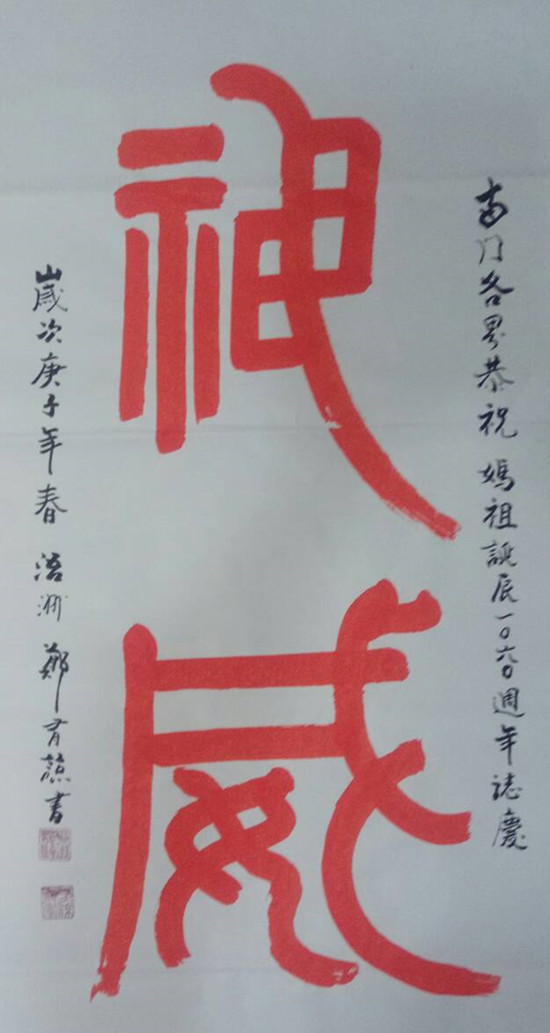 南门各界恭祝 媽祖誕辰一〇六〇週年誌慶
神威
歲次庚子年春 浯洲 鄭有書